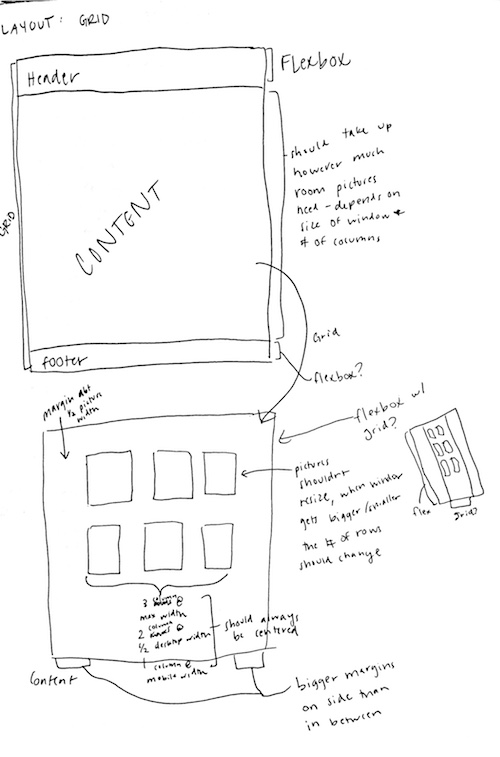 LAYOUT: GRID
Header
Flexbox
should take up
however much
room pictures
need - depends on
size of window +
# of columns
GRID
CONTENT
Grid
footer
flexbox?
margin abt
1/2 picture
width
flexbox w/
grid?
pictures
shouldn't
resize, when window
gets bigger/smaller
the # of rows
should change
flex
grid?
3 column @
max width
2 column @
1/2 desktop width
1 column @
mobile width
should always
be centered
Content
bigger margins
on side than
in between